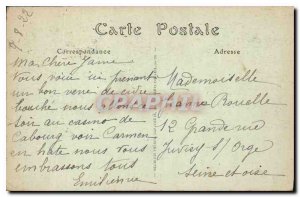 9.8.22
Carte Postale
Correspondance
Adresse
Ma Chère Jeanne
Vous voici ici prenant
un bon verre de cidre
bouché nous
soir au casino de
Cabourg voir Carmen
en hâte nous tous
embrassons tous
Emilienne
Mademoiselle
Jeanne Rouelle
12 Grande rue
Juvisy s/ Orge
Seine et oise